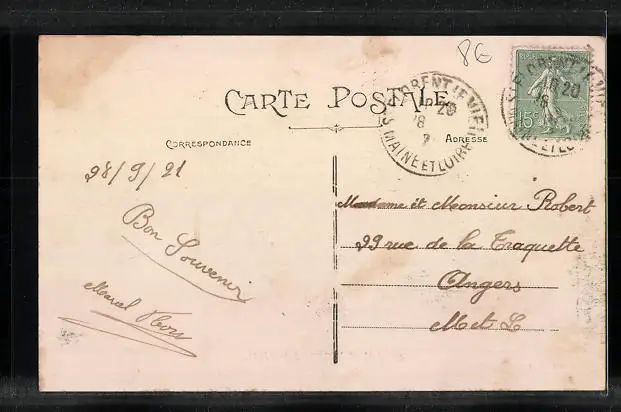 8€
CARTE POSTALE
ST FLORENT LE VIEIL
MAINE ET LOIRE
15c
CORRESPONDANCE
ADRESSE
28/9/21
Bon Souvenir
Marcel
Madame et Monsieur Robert
29 rue de la Traquette
Angers
M et L